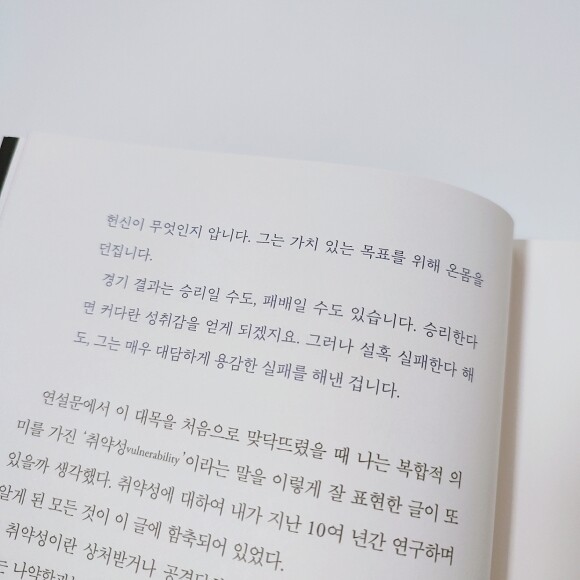 헌신이 무엇인지 압니다. 그는 가치 있는 목표를 위해 온몸을
던집니다.
경기 결과는 승리일 수도, 패배일 수도 있습니다. 승리한다
면 커다란 성취감을 얻게 되겠지요. 그러나 설혹 실패한다 해
도, 그는 매우 대담하게 용감한 실패를 해낸 겁니다.
연설문에서 이 대목을 처음으로 맞닥뜨렸을 때 나는 복합적 의
미를 가진 '취약성vulnerability'이라는 말을 이렇게 잘 표현한 글이 또
있을까 생각했다. 취약성에 대하여 내가 지난 10여 년간 연구하며
알게 된 모든 것이 이 글에 함축되어 있었다.
취약성이란 상처받거나